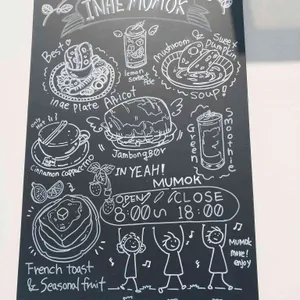 INAE MUMOK
Best
inae Plate
lemon
sorbet
Ade
Mushroom & Sweet
Pumpkin
Soup!
Apricot
Jambong Bør
only
hot!!
Cinnamon Cappuccino
Green
Smoothie
IN YEAH!
MUMOK
OPEN CLOSE
8:00 ~ 18:00
French toast
& Seasonal fruit
Mumok
mine!
enjoy